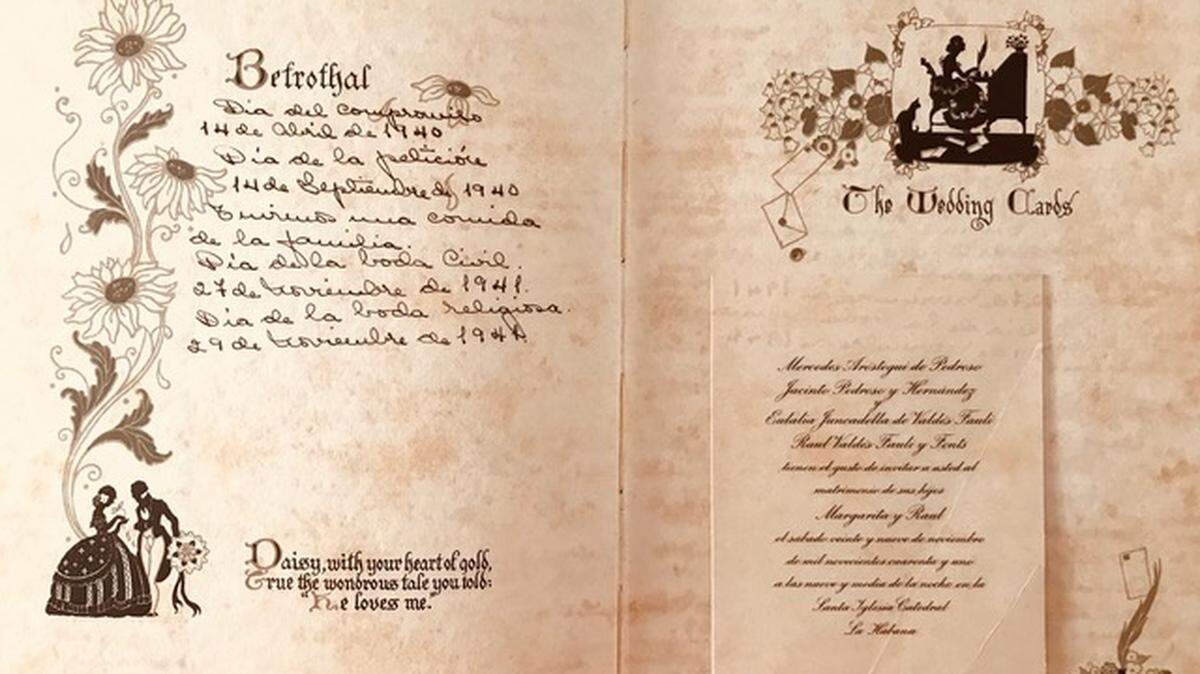 Betrothal
Dia del compromiso
14 de Abril de 1940
Día de la petición
14 de Septiembre de 1940
Tuvimos una comida
de la familia.
Día de la boda Civil.
27 de Noviembre de 1941.
Día de la boda religiosa.
29 de Noviembre de 1941
Daisy, with your heart of gold,
True the wondrous tale you told:
"He loves me."
The Wedding Cards
Mercedes Aróstegui de Pedroso
Jacinto Pedroso y Hernández
y
Eulalia Juncadella de Valdés Fauli
Raul Valdés Fauli y Fonts
tienen el gusto de invitar a usted al
matrimonio de sus hijos
Margarita y Raul
el sábado veinte y nueve de noviembre
de mil novecientos cuarenta y uno
a las nueve y media de la noche en la
Santa Iglesia Catedral
La Habana